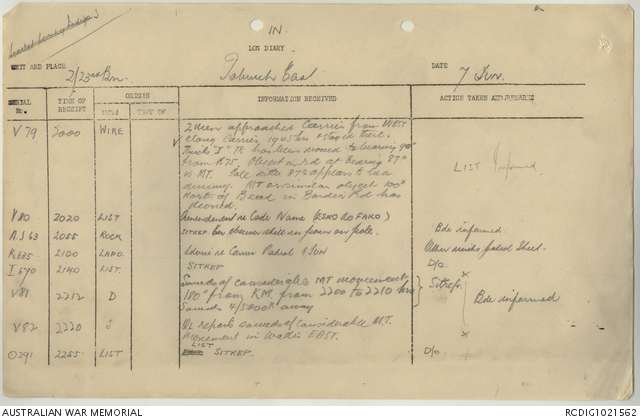 IN
LOG DIARY
UNIT AND PLACE 2/23rd Bn. Tobruch East DATE 7 Jun.
SERIAL No. TIME OF RECEIPT ORIGIN INFORMATION RECEIVED ACTION TAKEN AND REMARKS
V79 2000 WIRE 2 Men approached Carrier from WEST
along Carrier 1945 hrs & stood there.
Truck "I" has been moved to bearing 90°
from R75. Object on rd at bearing 87°
is MT. Pole with 87° appears to be a
dummy. MT or similar object 100°
North of Bend in Bardia Rd has
moved.
LIST Informed.
V80 2020 LIST Amendment re Code Name (ESKO to FAKO) Bde informed.
A.S63 2055 ROCK SITREP
R235 2100 LADO. Advice re Patrol 7 JUN
I590 2140 LIST. SITREP D/o.
V81 2212 D Sounds of considerable MT movement
180° from R.M. from 2200 to 2210 hrs
Sounds 4/5000x away
Sitrep. Bde informed
V82 2220 J reports sounds of considerable M.T.
movement in Wadi's EAST.
O291 2255 LIST LIST SITREP. D/o.
AUSTRALIAN WAR MEMORIAL
RCDIG1021562